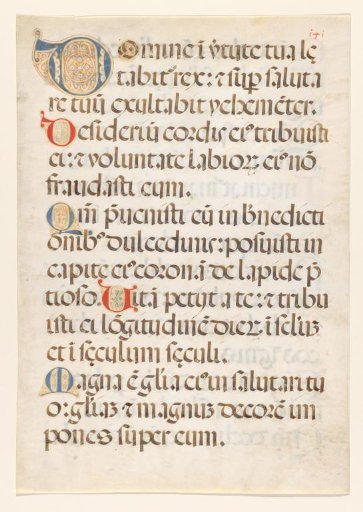 Domine ĩ v̾tute tua lę
tabit᷑ rex: ⁊ sup̱ saluta
re tuũ exultabit vehemẽter.
Desideriũ cordis ei᷒ tribuisti
ei: ⁊ volũtate labioꝝ ei᷒ nõ
fraudasti eum.
Qm̃ p̾uenisti eũ in b̃nedicti
onib᷒ dulcedinis: posuisti in
capite ei᷒ coronã de lapide p̃
tioso. Vitã petijt a te: ⁊ tribu
isti ei lõgitudinẽ dieꝝ ĩ sclʒ
et ĩ sęculum sęculi.
Magna ẽ gl̃ia ei᷒ in salutari tu
o: gl̃iaʒ ⁊ magnuʒ decorẽ im
pones super eum.